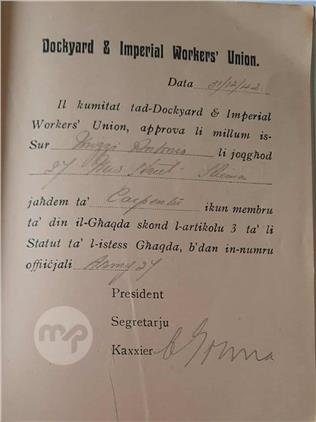 Dockyard & Imperial Workers' Union.
Data 31/12/42
Il kumitat tad-Dockyard & Imperial
Workers' Union, approva li millum is-
Sur Muzzi Antonio li joqgħod
27 Street - Sliema
jaħdem ta' Carpenter ikun membru
ta' din il-Għaqda skond l-artikolu 3 ta' li
Statut ta' l-istess Għaqda, b'dan in-numru
offiċjali Army 27
President
Segretarju
Kaxxier
mp